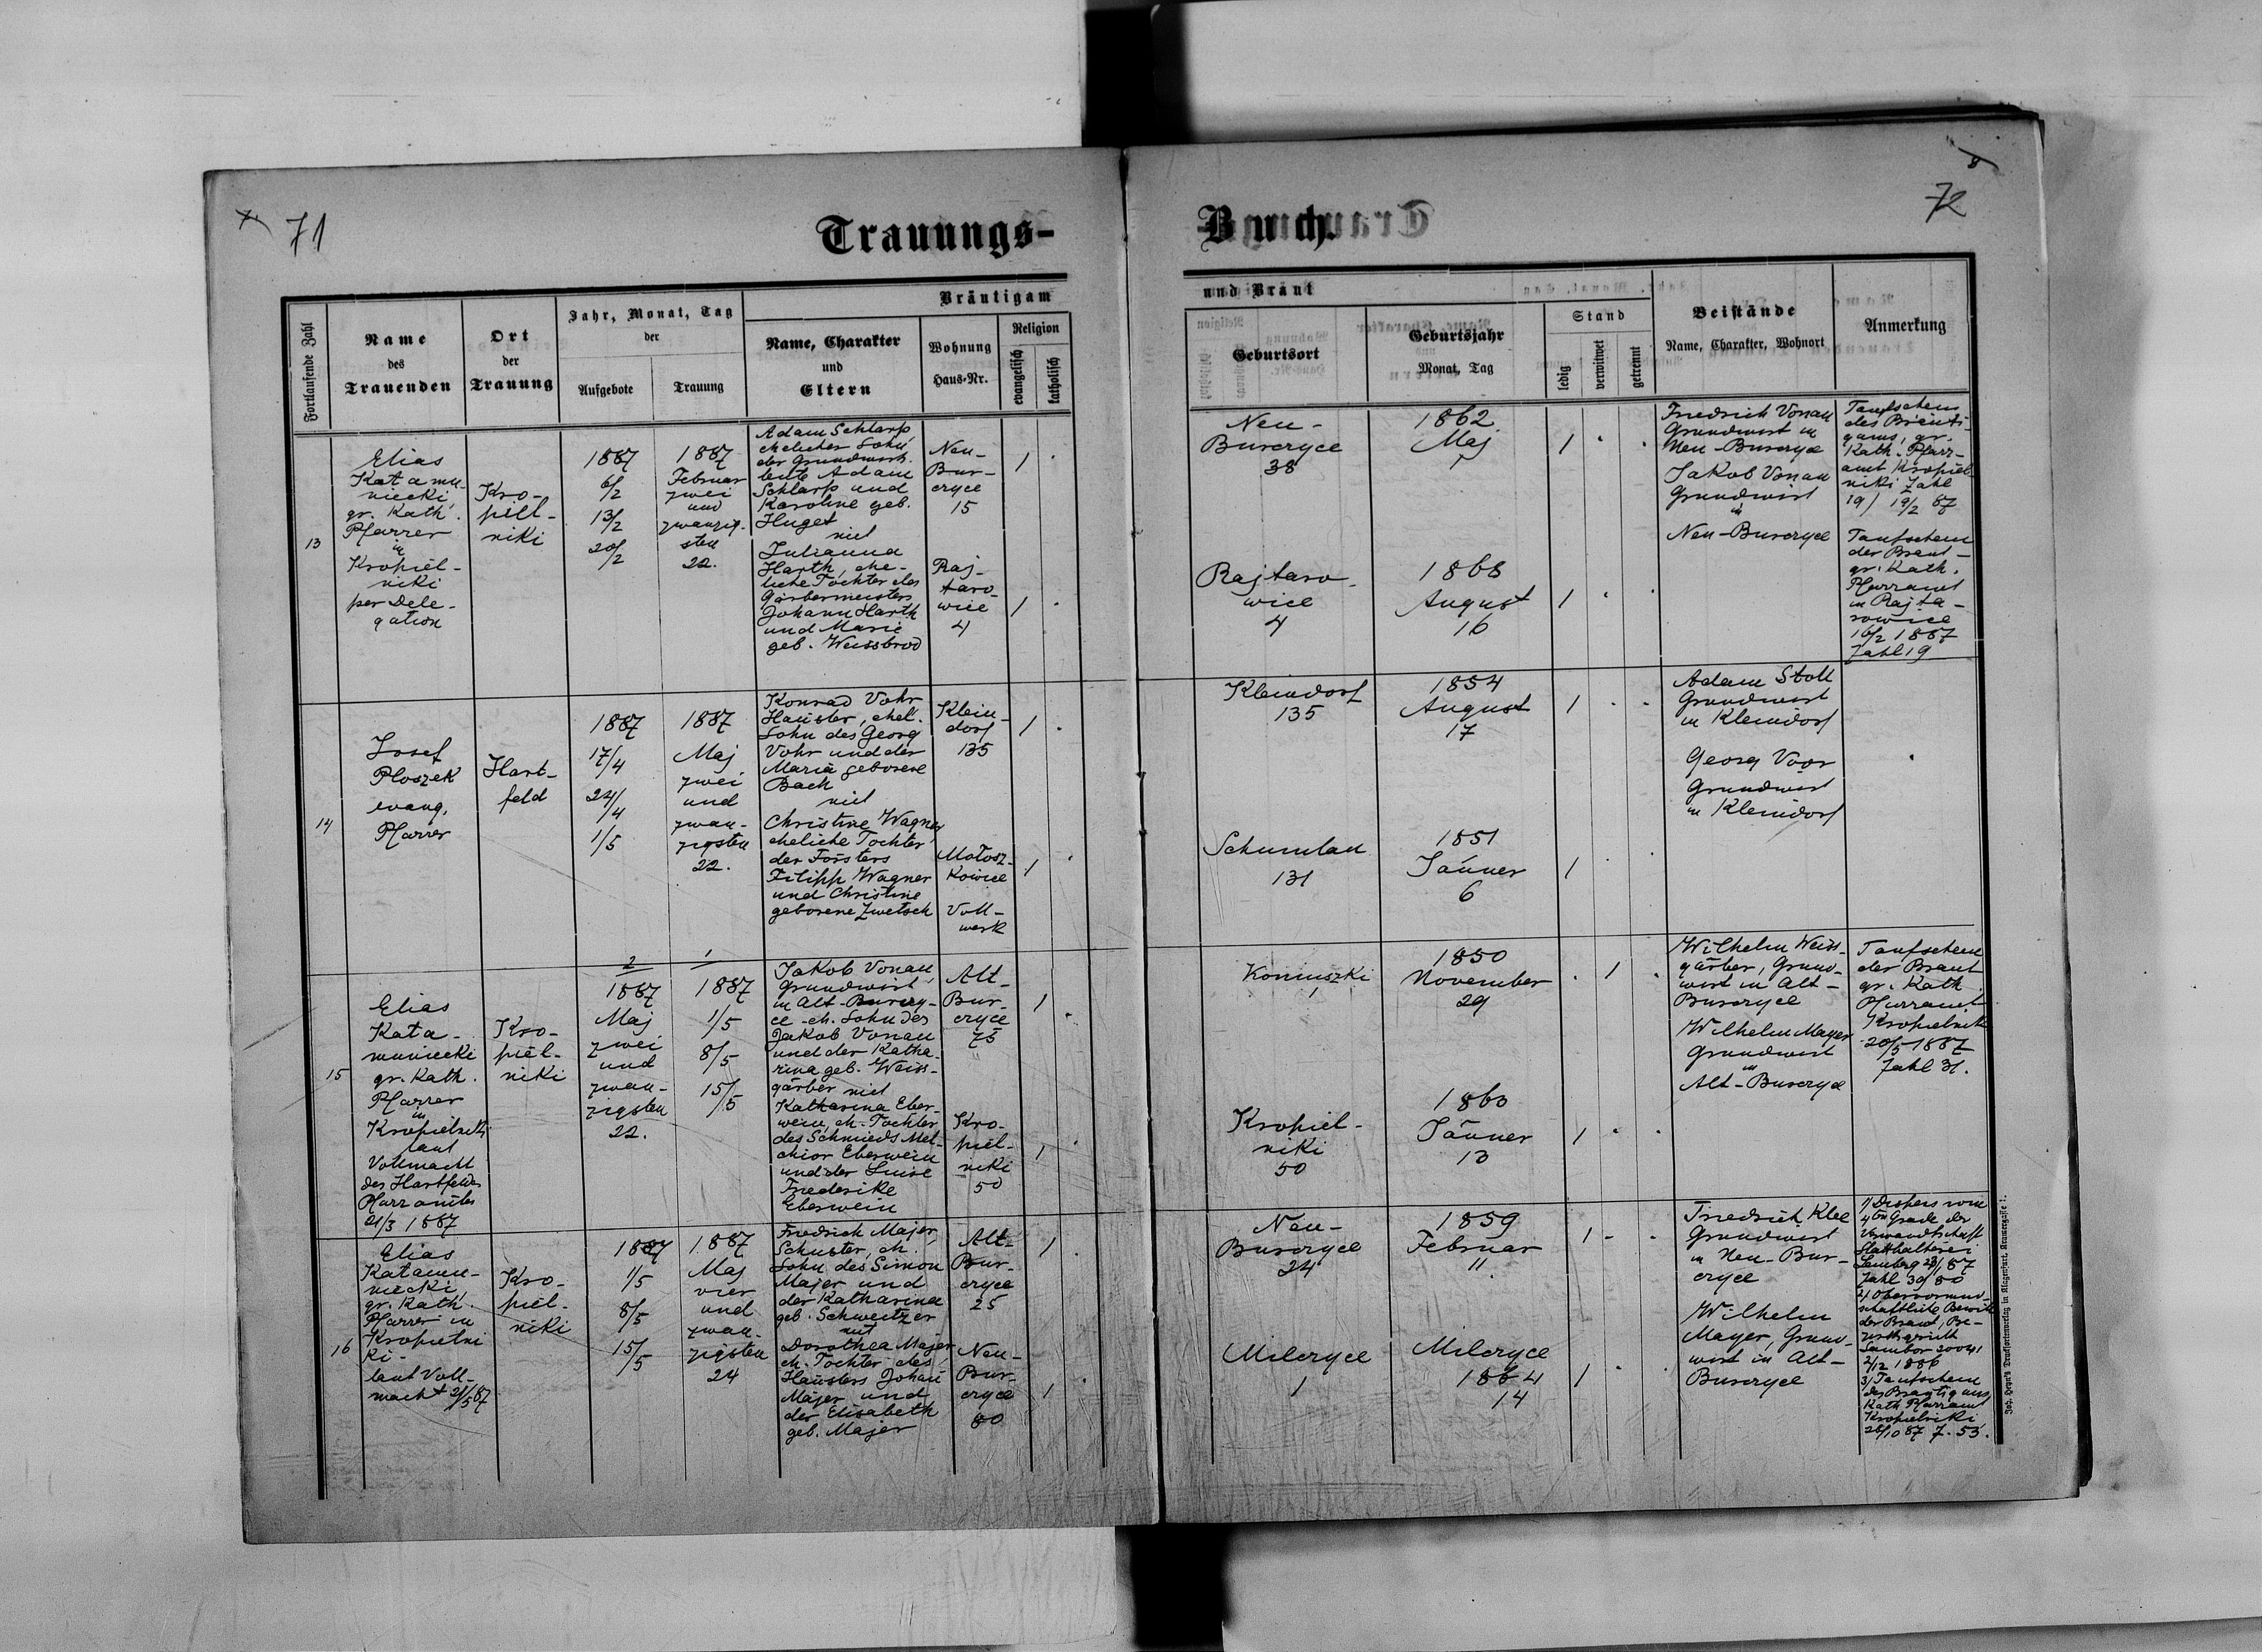 71
72
8
Trauungs-
Buch.
Fortlaufende Zahl
Name
des
Trauenden
Ort
der
Trauung
Jahr, Monat, Tag
der
Aufgebote
Trauung
Bräutigam
Name, Charakter
und
Eltern
Wohnung
Haus-Nr.
Religion
evangelisch
katholisch
und Braut
Geburtsort
Geburtsjahr
Monat, Tag
Stand
ledig
verwitwet
getrennt
Beistände
Name, Charakter, Wohnort
Anmerkung
13
Elias
Katamu-
niecki
gr. Kath.
Pfarrer
in
Kropiel-
niki
per Dele-
gation
Kro-
piel-
niki
1887
6/2
13/2
20/2
1887
Februar
zwei
und
zwanzig-
sten
22.
Adam Schlarp
ehelicher Sohn
der Grundwirth-
leute Adam
Schlarp und
Karoline geb.
Huget
mit
Julianna
Harth, ehe-
liche Tochter des
Gärbermeisters
Johann Harth
und Marie
geb. Weissbrod
Neu-
Bur-
cryce
15
Raj-
taro-
wice
4
1
1
Neu-
Burcryce
38
1862
Maj
1
1
Rajtaro-
wice
4
1868
August
16
1
Friedrich Vonau
Grundwirt in
Neu-Burcryce
Jakob Vonau
Grundwirt
in
Neu-Burcryce
Taufschein
des Bräuti-
gams, gr.
Kath. Pfarr-
amt Kropiel-
niki Zahl
19/ 19/2 87
Taufschein
der Braut-
gr. Kath.
Pfarramt
in Rajta-
rowice
16/2 1887
Zahl 19
14
Josef
Ploszek
evang.
Pfarrer
Hart-
feld
1887
17/4
24/4
1/5
1887
Maj
zwei
und
zwan-
zigsten
22.
Konrad Vohr
Häusler, ehel.
Sohn des Georg
Vohr und der
Maria geborene
Bach
mit
Christine Wagner
eheliche Tochter
der Försters
Filipp Wagner
und Christine
geborene Zwetsch
Klein-
dorf
135
Małosz-
kowice
Voll-
werk
1
1
Kleindorf
135
1854
August
17
1
Schumlau
131
1851
Jänner
6
1
Adam Stoll
Grundwirt
in Kleindorf
Georg Voor
Grundwirt
in Kleindorf
15
Elias
Kata-
muniecki
gr. Kath.
Pfarrer
in
Kropielniki
laut
Vollmacht
des Hartfelder
Pfarramtes
21/3 1887
Kro-
piel-
niki
2
1887
Maj
zwei
und
zwan-
zigsten
22.
1
1887
1/5
8/5
15/5
Jakob Vonau
Grundwirt
in Alt-Burcry-
ce eh. Sohn des
Jakob Vonau
und der Katha-
rina geb. Weiss-
gärber mit
Katharina Eber-
wein, eh. Tochter
des Schmieds Mel-
chior Eberwein
und der Luise
Friederike
Eberwein
Alt-
Bur-
cryce
75
Kro-
piel-
niki
50
1
1
Koniuszki
1
1850
November
29
1
Kropiel-
niki
50
1863
Jänner
13
1
Wilhelm Weiss-
gärber, Grund-
wirt in Alt-
Burcryce
Wilhelm Mayer
Grundwirt
in
Alt-Burcryce
Taufschein
der Braut
gr. Kath.
Pfarramt
Kropielniki
20/5 1887
Zahl 31.
16
Elias
Katamu-
niecki,
gr. Kath.
Pfarrer in
Kropielni
ki-
laut Voll-
macht 21/5 87
Kro-
piel-
niki
1887
1/5
8/5
15/5
1887
Maj
vier
und
zwan-
zigsten
24
Friedrich Majer,
Schuster, eh.
Sohn des Simon
Majer und
der Katharina
geb. Schweitzer
mit
Dorothea Majer
eh. Tochter des
Häuslers Johann
Majer und
der Elisabeth
geb. Majer
Alt-
Bur-
cryce
25
Neu-
Bur-
cryce
80
1
1
Neu-
Burcryce
24
1859
Februar
11
1
Milcryce
1
Milcryce
1864
14
1
Friedrich Klee
Grundwirt
in Neu-Bur-
cryce
Wilhelm
Mayer, Grund-
wirt in Alt-
Burcryce
1/ Dispens vom
4ten Grade der
Verwandtschaft
Statthalterei
Lemberg
Zahl
2/ Obervormund-
schaftliche
der Braut, Be-
zirksgericht
Sambor 20041
2/12 1886
3/ Taufschein
des Bräutigams
Kath Pfarramt
Kropielniki
28/10 87 Z. 53.
Joh. Heyn's Drucksortenverlag in Klagenfurt, Kramergasse